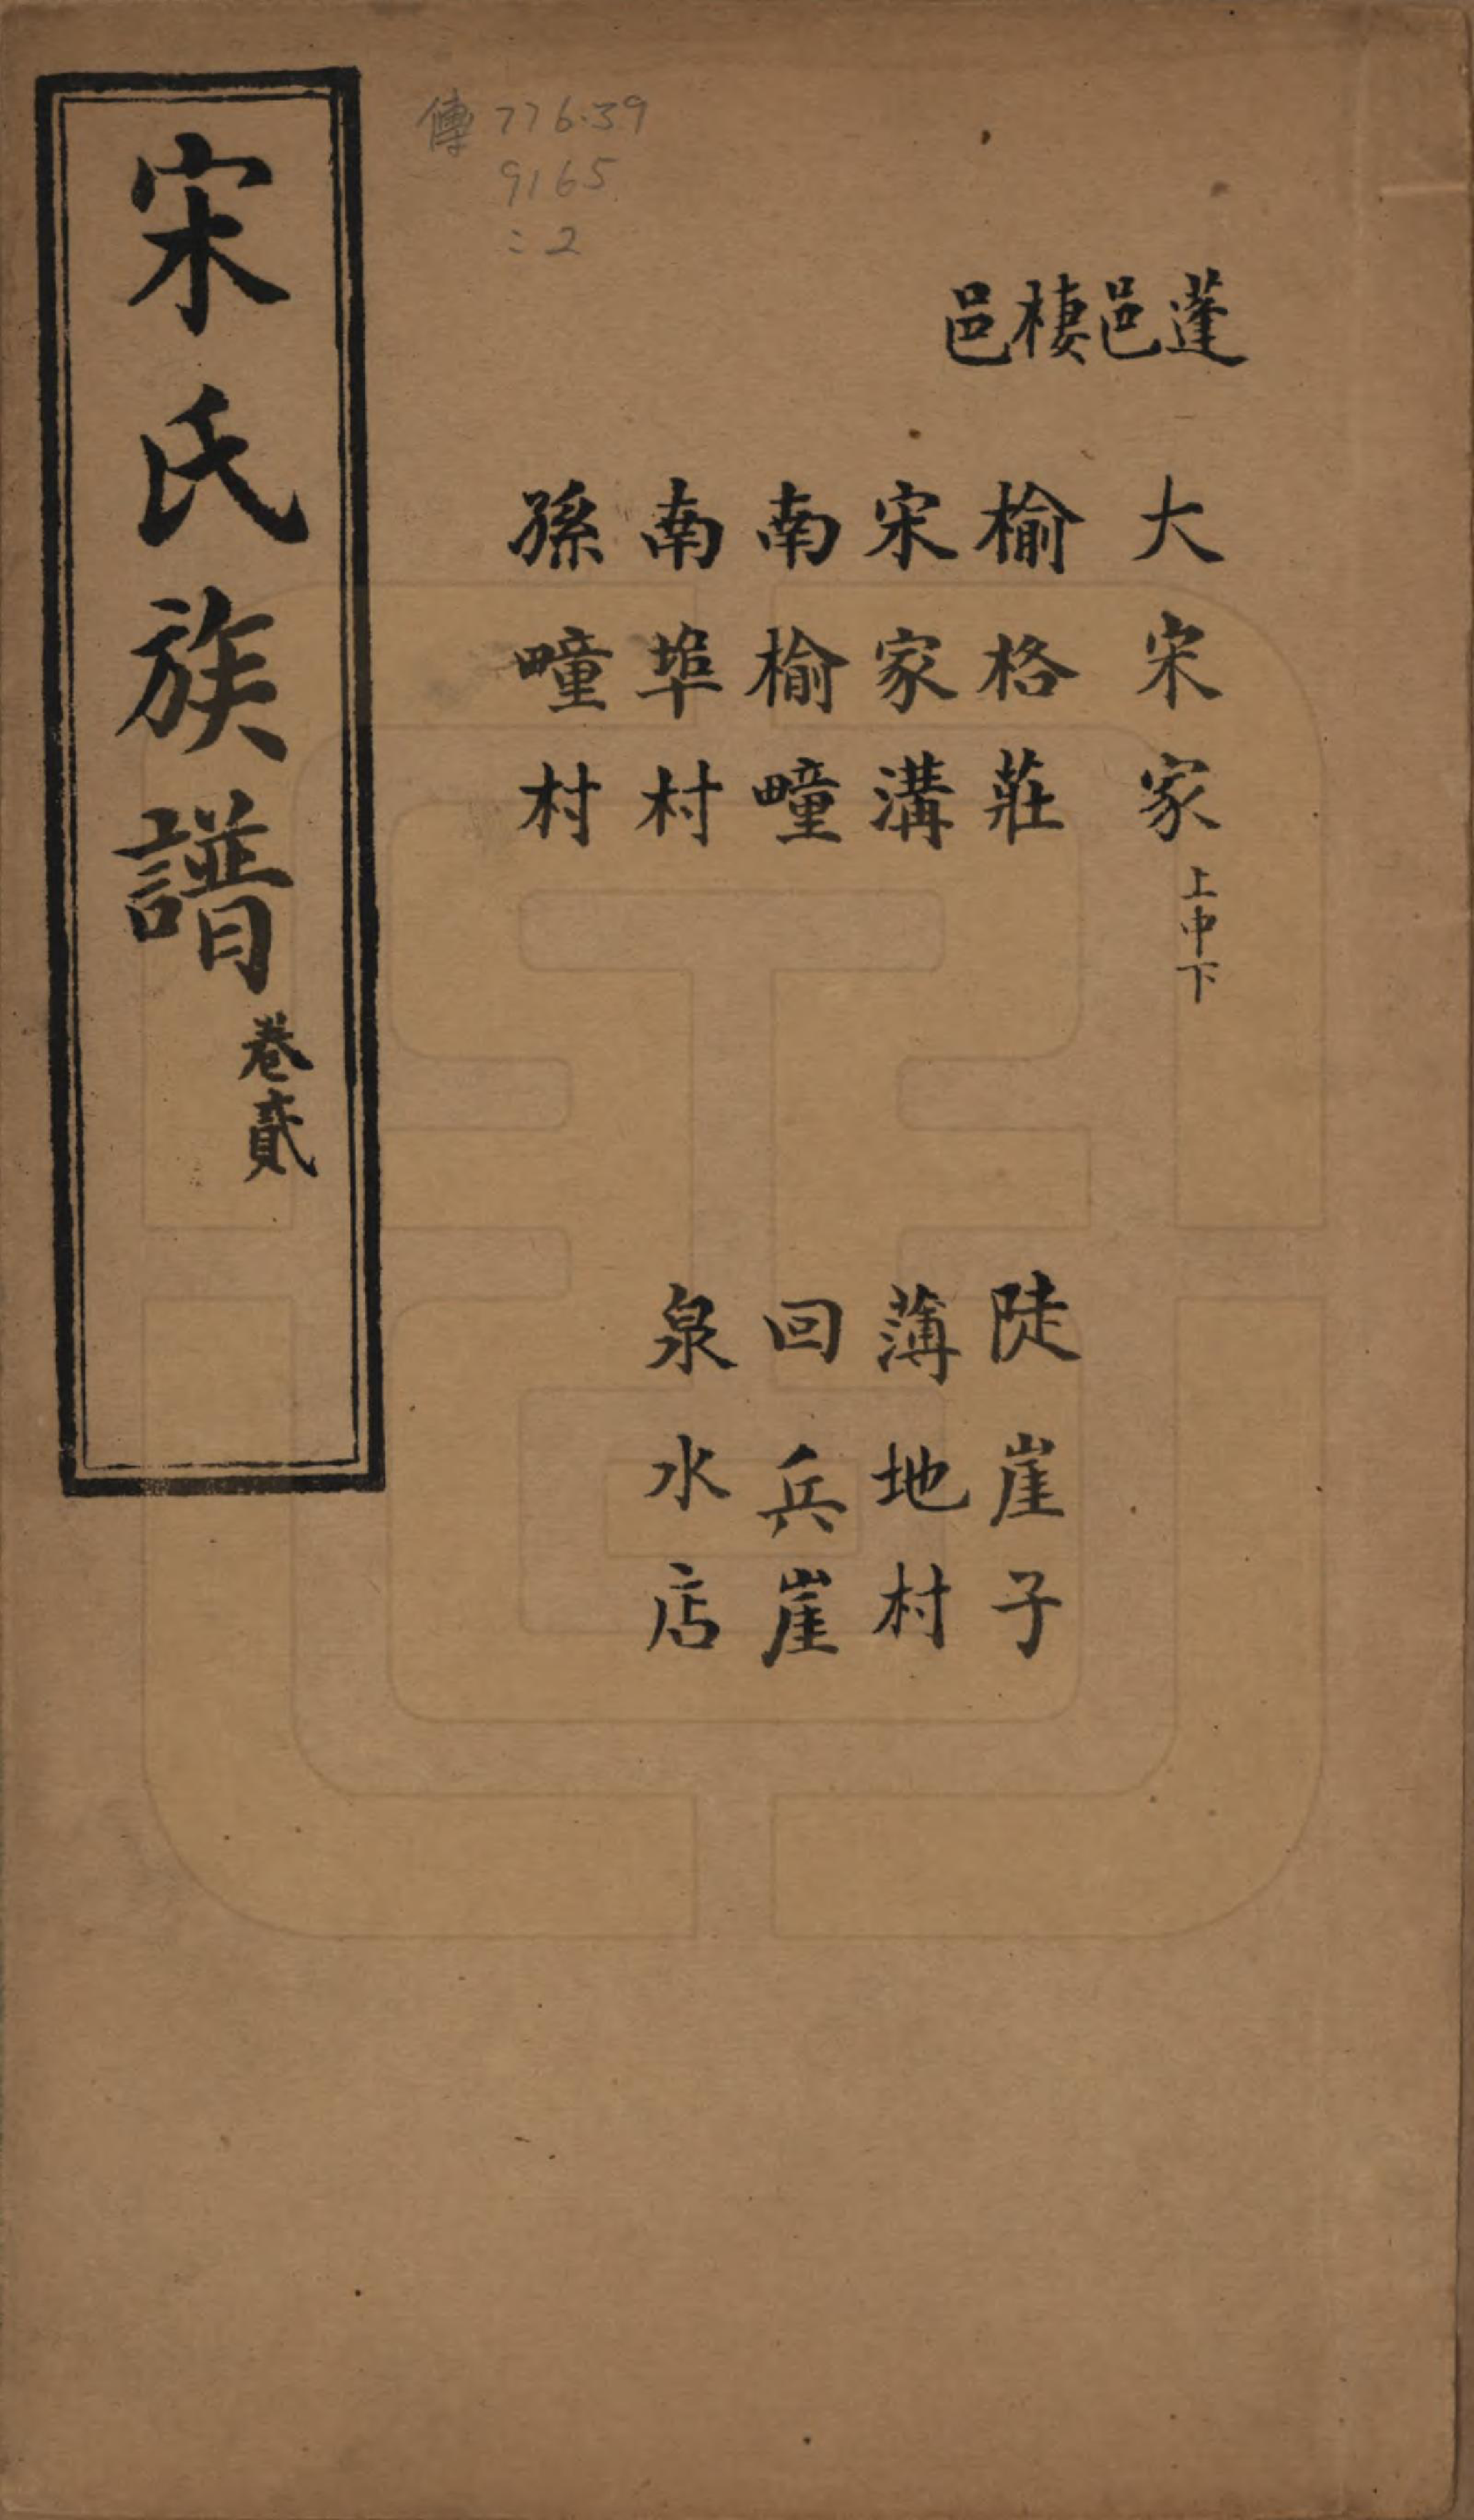 蓬邑棲邑
大宋家上中下
榆格莊
宋家溝
南榆疃
南埠村
孫疃村
陡崖子
薄地村
回兵崖
泉水店
傳 776.39
9165
:2
宋氏族譜卷貳